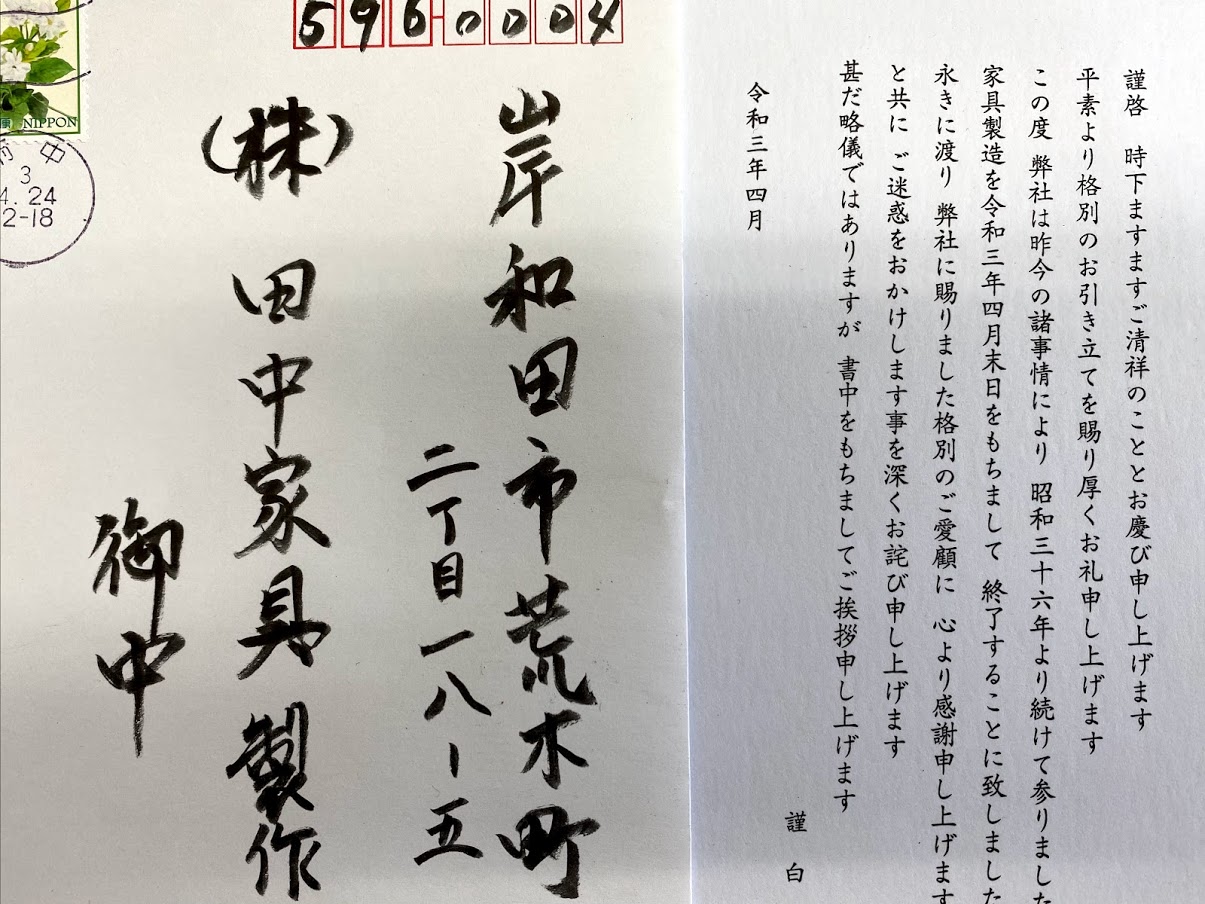 596-0004
岸和田市荒木町
二丁目一八ー五
(株)田中家具製作
御中
NIPPON
3
4.24
2-18
謹啓 時下ますますご清祥のこととお慶び申し上げます
平素より格別のお引き立てを賜り厚くお礼申し上げます
この度 弊社は昨今の諸事情により 昭和三十六年より続けて参りました
家具製造を令和三年四月末日をもちまして 終了することに致しました
永きに渡り 弊社に賜りました格別のご愛顧に 心より感謝申し上げます
と共に ご迷惑をおかけします事を深くお詫び申し上げます
甚だ略儀ではありますが 書中をもちましてご挨拶申し上げます
謹白
令和三年四月